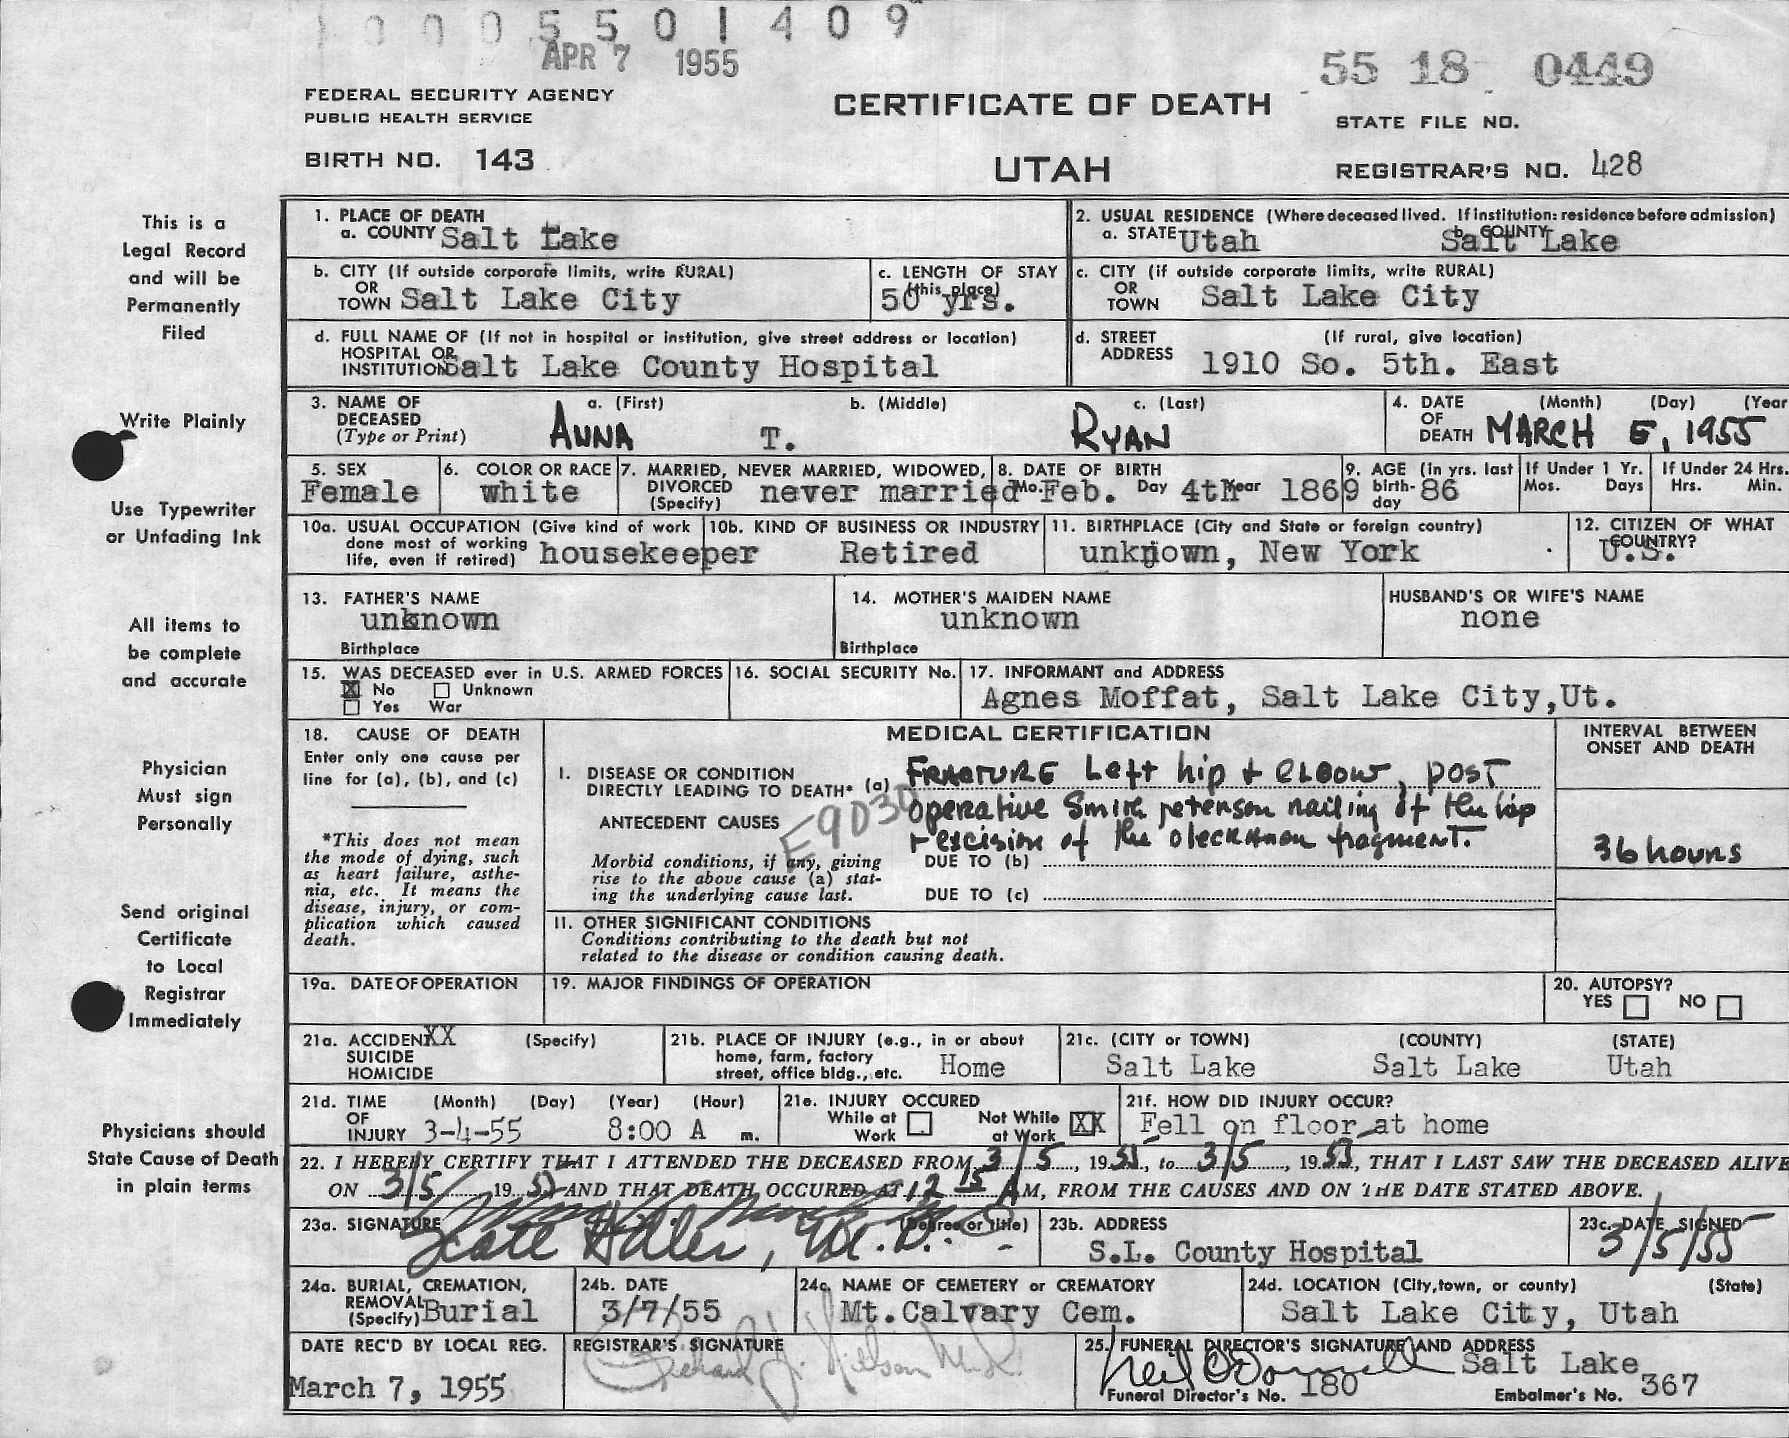 1 0 0 0 5 5 0 1 4 0 9
APR 7 1955
55 18 0449
FEDERAL SECURITY AGENCY
PUBLIC HEALTH SERVICE
CERTIFICATE OF DEATH
STATE FILE NO.
BIRTH NO. 143
UTAH
REGISTRAR'S NO. 428
This is a
Legal Record
and will be
Permanently
Filed
Write Plainly
Use Typewriter
or Unfading Ink
All items to
be complete
and accurate
Physician
Must sign
Personally
Send original
Certificate
to Local
Registrar
Immediately
Physicians should
State Cause of Death
in plain terms
1. PLACE OF DEATH
a. COUNTY Salt Lake
2. USUAL RESIDENCE (Where deceased lived. If institution: residence before admission)
a. STATE Utah b. COUNTY Salt Lake
b. CITY (If outside corporate limits, write RURAL)
OR
TOWN Salt Lake City
c. LENGTH OF STAY
(this place)
50 yrs.
c. CITY (if outside corporate limits, write RURAL)
OR
TOWN Salt Lake City
d. FULL NAME OF (If not in hospital or institution, give street address or location)
HOSPITAL OR
INSTITUTION Salt Lake County Hospital
d. STREET (If rural, give location)
ADDRESS 1910 So. 5th. East
3. NAME OF DECEASED (Type or Print)
a. (First) b. (Middle) c. (Last)
ANNA T. RYAN
4. DATE OF DEATH (Month) (Day) (Year
MARCH 5, 1955
5. SEX
Female
6. COLOR OR RACE
white
7. MARRIED, NEVER MARRIED, WIDOWED,
DIVORCED
(Specify) never married
8. DATE OF BIRTH
Mo. Feb. Day 4th Year 1869
9. AGE (in yrs. last
birth-
day 86
If Under 1 Yr.
Mos. Days
If Under 24 Hrs.
Hrs. Min.
10a. USUAL OCCUPATION (Give kind of work
done most of working
life, even if retired) housekeeper
10b. KIND OF BUSINESS OR INDUSTRY
Retired
11. BIRTHPLACE (City and State or foreign country)
unknown, New York
12. CITIZEN OF WHAT
COUNTRY?
U.S.
13. FATHER'S NAME
unknown
Birthplace
14. MOTHER'S MAIDEN NAME
unknown
Birthplace
HUSBAND'S OR WIFE'S NAME
none
15. WAS DECEASED ever in U.S. ARMED FORCES
X No Unknown
Yes War
16. SOCIAL SECURITY No.
17. INFORMANT and ADDRESS
Agnes Moffat, Salt Lake City,Ut.
18. CAUSE OF DEATH
Enter only one cause per
line for (a), (b), and (c)
*This does not mean
the mode of dying, such
as heart failure, asthe-
nia, etc. It means the
disease, injury, or com-
plication which caused
death.
MEDICAL CERTIFICATION
I. DISEASE OR CONDITION
DIRECTLY LEADING TO DEATH* (a)
FRACTURE Left hip + elbow, post
operative Smith peterson nailing of the hip
+ excision of the oleckranon fragment.
E9030
ANTECEDENT CAUSES
Morbid conditions, if any, giving
rise to the above cause (a) stat-
ing the underlying cause last.
DUE TO (b)
DUE TO (c)
INTERVAL BETWEEN
ONSET AND DEATH
36 hours
II. OTHER SIGNIFICANT CONDITIONS
Conditions contributing to the death but not
related to the disease or condition causing death.
19a. DATE OF OPERATION
19. MAJOR FINDINGS OF OPERATION
20. AUTOPSY?
YES NO
21a. ACCIDENT XX (Specify)
SUICIDE
HOMICIDE
21b. PLACE OF INJURY (e.g., in or about
home, farm, factory
street, office bldg., etc. Home
21c. (CITY or TOWN) (COUNTY) (STATE)
Salt Lake Salt Lake Utah
21d. TIME (Month) (Day) (Year) (Hour)
OF
INJURY 3-4-55 8:00 A m.
21e. INJURY OCCURED
While at Work Not While at Work XX
21f. HOW DID INJURY OCCUR?
Fell on floor at home
22. I HEREBY CERTIFY THAT I ATTENDED THE DECEASED FROM 3/5, 1955, to 3/5, 1955, THAT I LAST SAW THE DECEASED ALIVE
ON 3/5 1955 AND THAT DEATH OCCURED AT 12 15 AM, FROM THE CAUSES AND ON THE DATE STATED ABOVE.
23a. SIGNATURE (Degree or title)
M.D.
23b. ADDRESS
S.L. County Hospital
23c. DATE SIGNED
3/5/55
24a. BURIAL, CREMATION,
REMOVAL
(Specify) Burial
24b. DATE
3/7/55
24c. NAME OF CEMETERY or CREMATORY
Mt. Calvary Cem.
24d. LOCATION (City, town, or county) (State)
Salt Lake City, Utah
DATE REC'D BY LOCAL REG.
March 7, 1955
REGISTRAR'S SIGNATURE
Richard J. Nielson M.D.
25. FUNERAL DIRECTOR'S SIGNATURE AND ADDRESS
Neil O'Donnell Salt Lake
Funeral Director's No. 180 Embalmer's No. 367